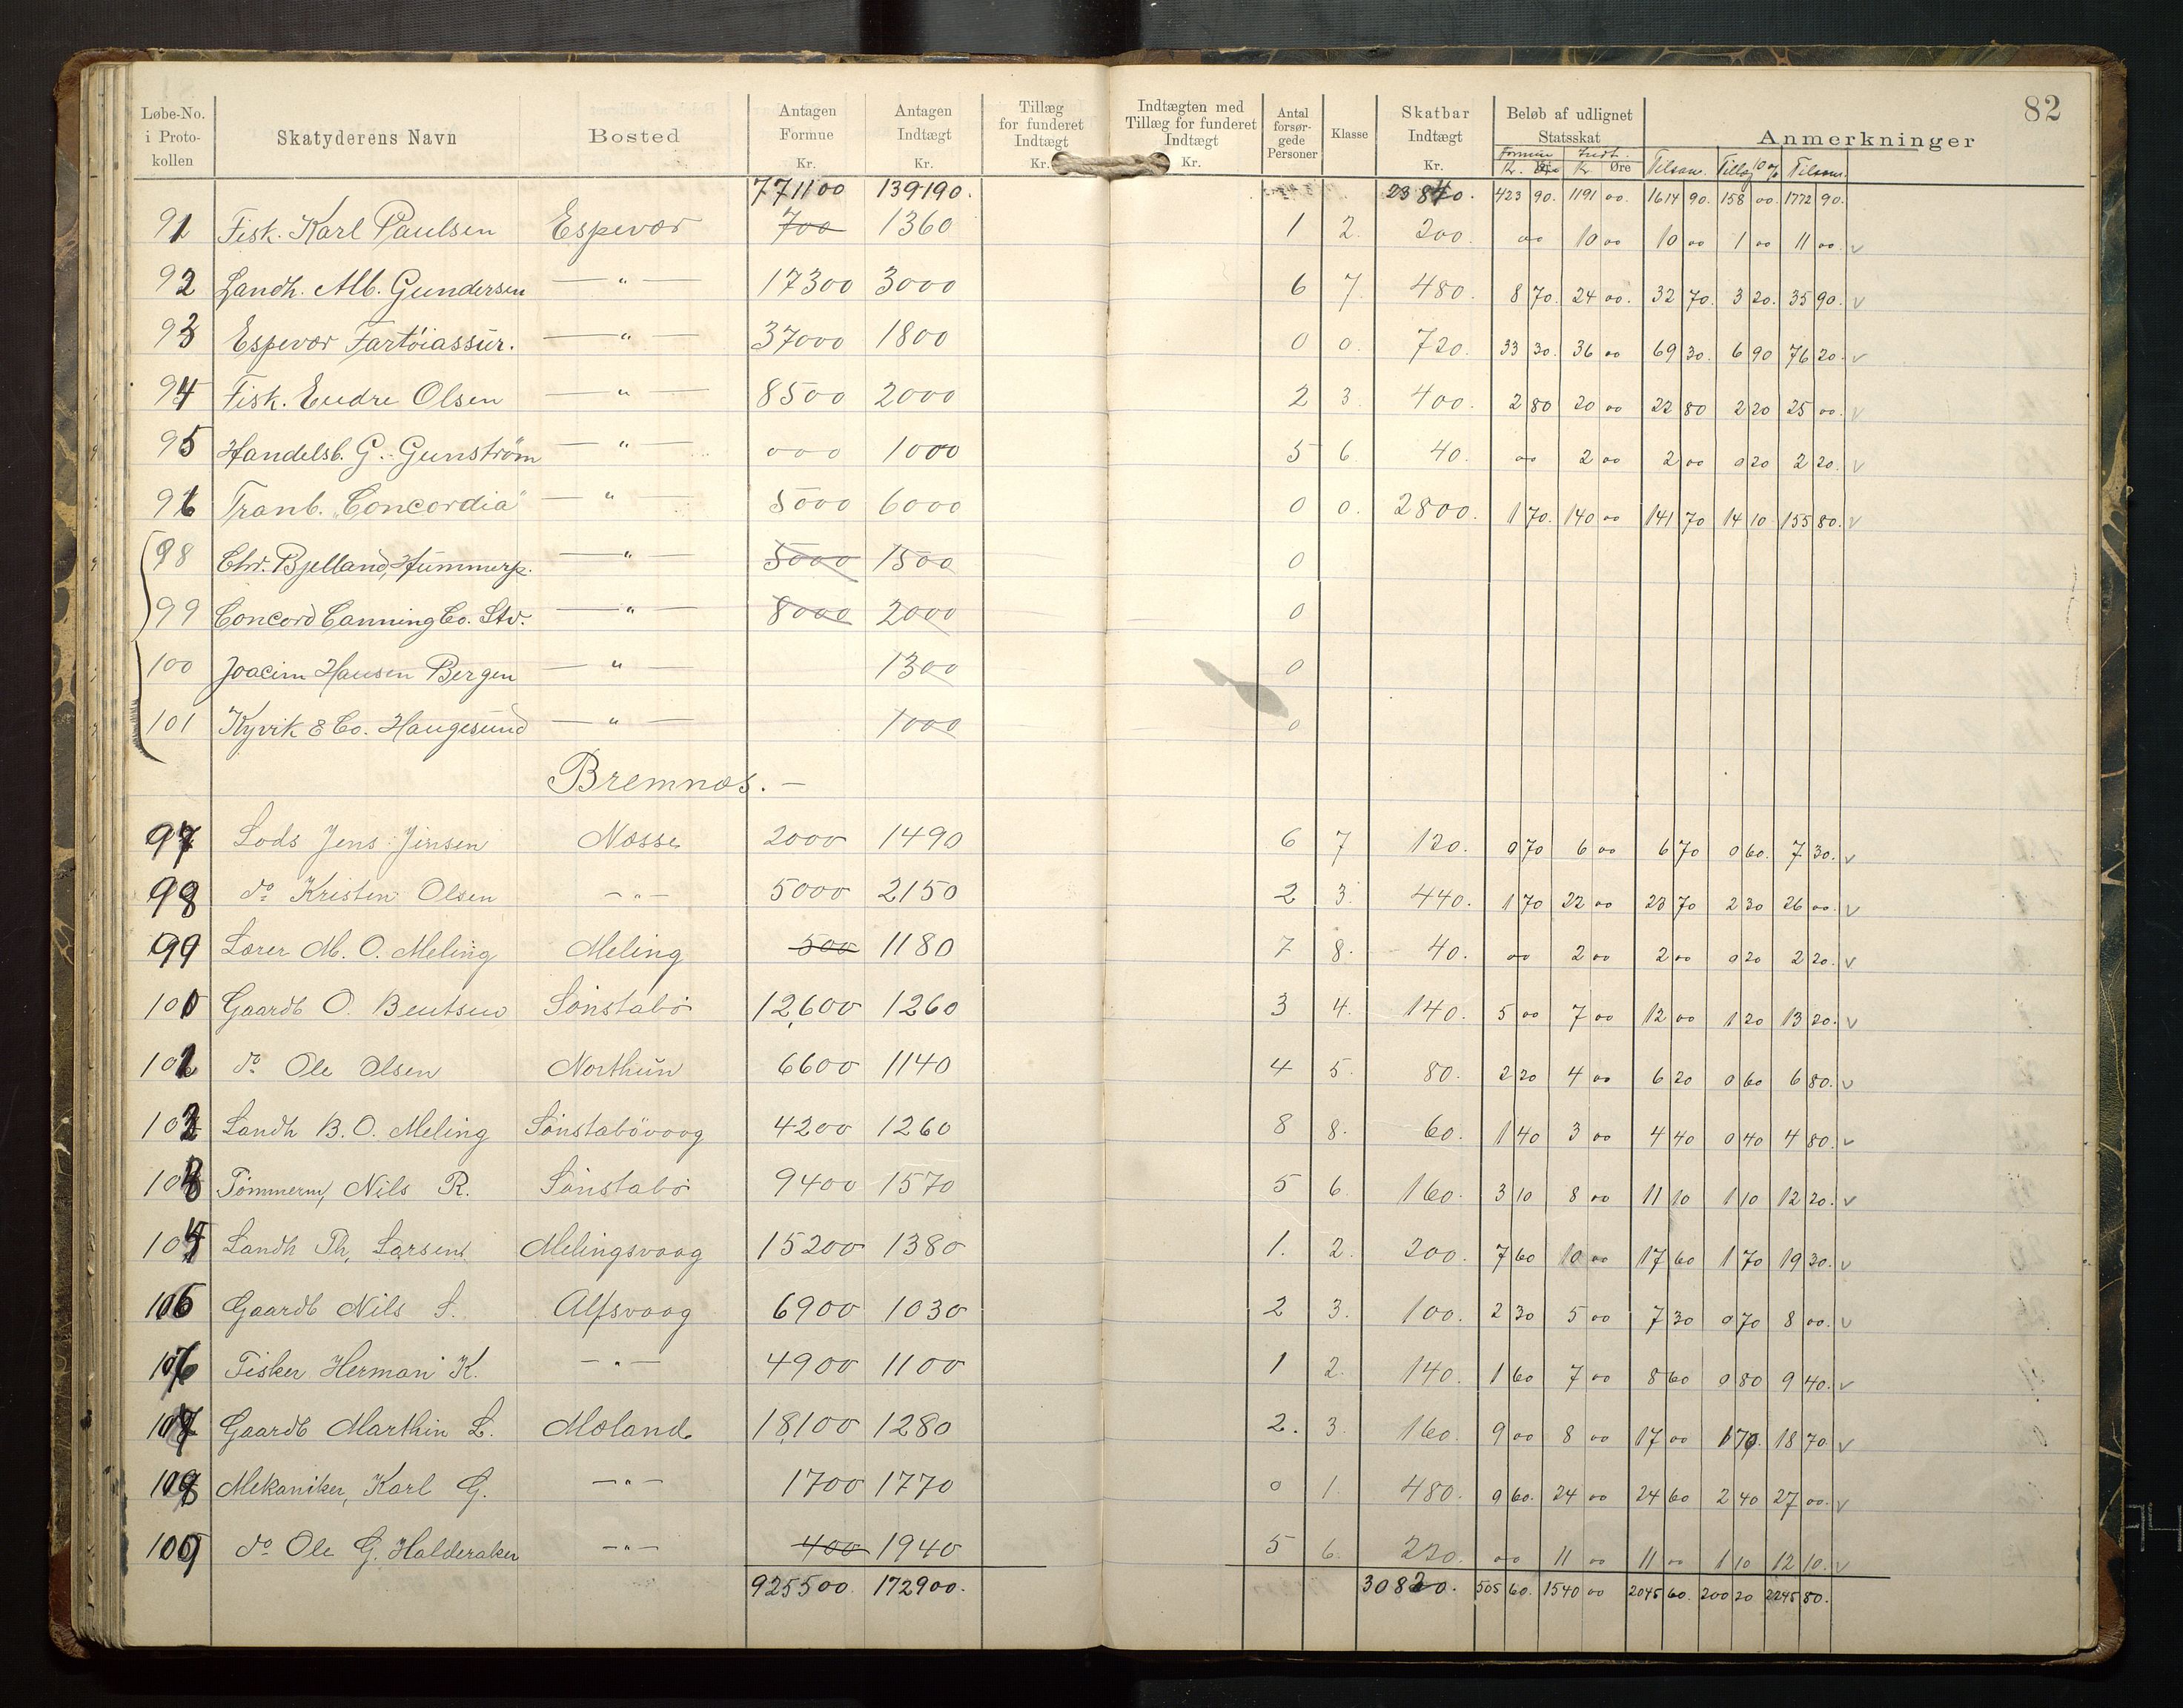 82
Løbe-No. i Proto-kollen | Skatyderens Navn | Bosted | Antagen Formue Kr. | Antagen Indtægt Kr. | Tillæg for funderet Indtægt Kr. | Indtægten med Tillæg for funderet Indtægt Kr. | Antal forsør-gede Personer | Klasse | Skatbar Indtægt Kr. | Beløb af udlignet Statsskat Formue Kr. Indt. Kr. Øre | Anmerkninger Tilsam. Tillæg 10% Tilsam.
771100 139190. 23840. 423 90. 1191 00. 1614 90. 158 00. 1772 90.
91 Fisk. Karl Paulsen Espevær 700 1360 1 2. 200. 00 10 00 10 00 1 00 11 00. v
92 Landh. Alb. Gundersen — " — 17300 3000 6 7. 480. 8 70. 24 00. 32 70. 3 20. 35 90. v
93 Espevær Fartöiassur. — " — 37000 1800 0 0. 720. 33 30. 36 00 69 30. 6 90 76 20. v
94 Fisk. Endre Olsen — " — 8500 2000 2 3. 400. 2 80 20 00 22 80 2 20 25 00. v
95 Handelsb. G. Gunström — " — 000 1000 5 6. 40. 00 2 00 2 00 0 20 2 20. v
96 Tranb. „Concordia" — " — 5000 6000 0 0. 2800. 1 70. 140 00 141 70 14 10 155 80. v
98 Chr. Bjelland, Hummerp. — " — 5000 1500 0
99 Concord Canning Co. Stv. — " — 8000 2000 0
100 Joacim Hansen Bergen — " — 1300 0
101 Kyvik & Co. Haugesund — " — 1000 0
Bremnæs. —
97 Lods Jens Jensen Næsse 2000 1490 6 7 120. 0 70 6 00 6 70 0 60. 7 30. v
98 do Kristen Olsen — " — 5000 2150 2 3. 440. 1 70 22 00 23 70 2 30 26 00. v
99 Lærer M. O. Meling Meling 500 1180 7 8. 40. 00 2 00 2 00 0 20 2 20. v
100 Gaardb O. Bentsen Sönstabö 12,600 1260 3 4. 140. 5 00 7 00 12 00 1 20 13 20. v
101 do Ole Olsen Northun 6600 1140 4 5. 80. 2 20 4 00 6 20 0 60 6 80. v
102 Landh B. O. Meling Sönstabövaag 4200 1260 8 8. 60. 1 40 3 00 4 40 0 40 4 80. v
103 Tömmerm, Nils R. Sönstabö 9400 1570 5 6. 160. 3 10 8 00 11 10 1 10 12 20. v
104 Landh Th. Larsen Melingsvaag 15200 1380 1. 2. 200. 7 60 10 00 17 60 1 70 19 30. v
105 Gaardb Nils S. Alfsvaag 6900 1030 2 3. 100. 2 30 5 00 7 30 0 70 8 00. v
106 Fisker Herman K. — " — 4900 1100 1 2. 140. 1 60 7 00 8 60 0 80 9 40. v
107 Gaardb Marthin L. Moland 18,100 1280 2. 3. 160. 9 00 8 00 17 00 1 70. 18 70. v
108 Mekaniker, Karl G. — " — 1700 1770 0 1. 480. 0 60. 24 00 24 60 2 40 27 00. v
109 do Ole G. Halderaker — " — 400 1940 5 6. 220. 00 11 00 11 00 1 10 12 10. v
925500. 172900. 30820. 505 60. 1540 00 2045 60. 200 20 2245 80.